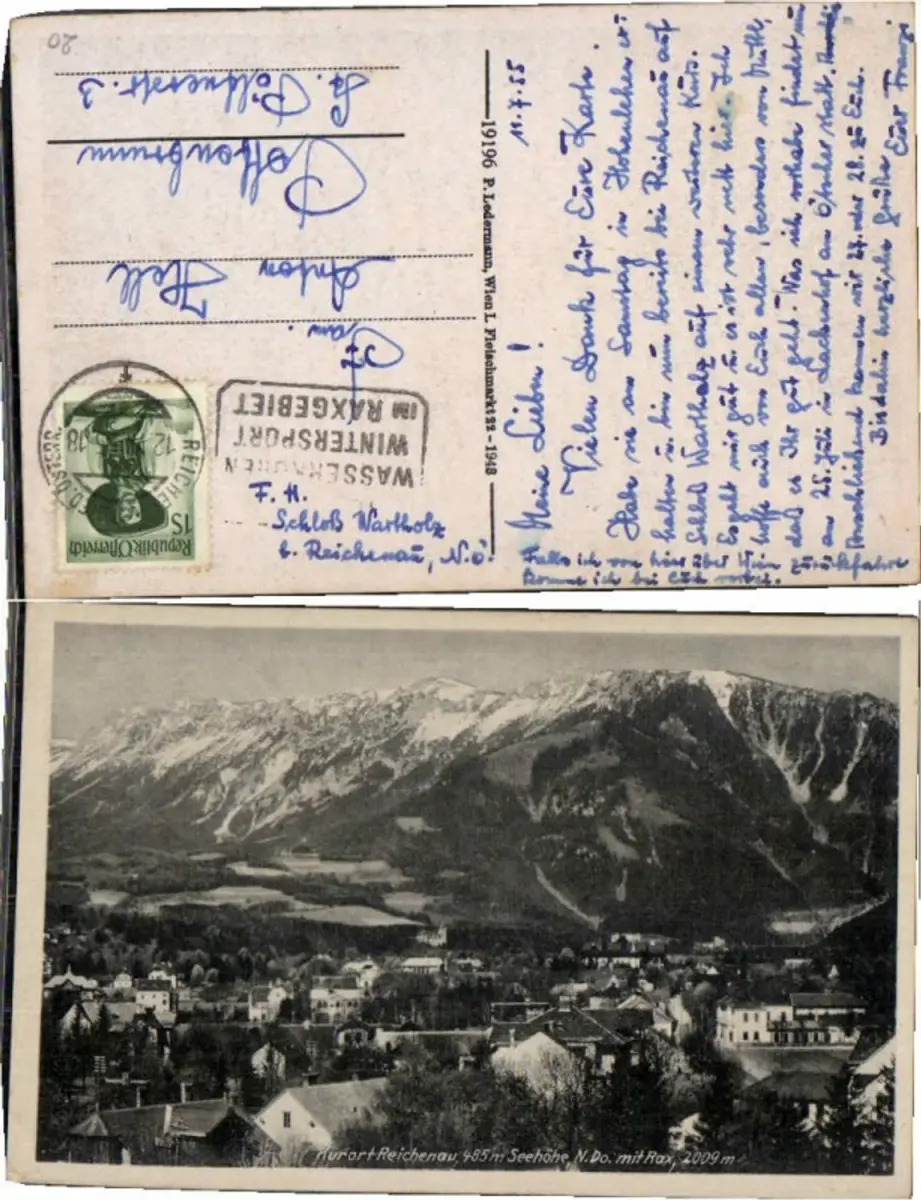 20
Fam.
Anton Hell
Pottenbrunn
St. Pöltnerstr. 3
Republik Österreich
1S
WASSERKUREN
WINTERSPORT
IM RAXGEBIET
F. H.
Schloß Wartholz
b. Reichenau, N.Ö.
19196 P. Ledermann, Wien I. Fleischmarkt 22 - 1948
11.7.55
Meine Lieben!
Vielen Dank für Eure Karte.
Habe sie am Samstag in Hohenlehen er-
halten u. bin nun bereits bei Reichenau auf
Schloß Wartholz auf einem weiteren Kurs.
Es geht mir gut u. es ist sehr nett hier. Ich
hoffe auch von Euch allen, besonders von Mutti,
daß es Ihr gut geht. Was ich vorhab findet nun
am 25. Juli in Lackenhof am Ötscher statt.
Voraussichtlich kommen wir 27. oder 28. zu Euch.
Bis dahin herzliche Grüße
Euer Franzi
Falls ich von hier über Wien zurückfahre
komme ich bei Euch vorbei.
Kurort Reichenau, 485 m Seehöhe, N.Do. mit Rax, 2009 m